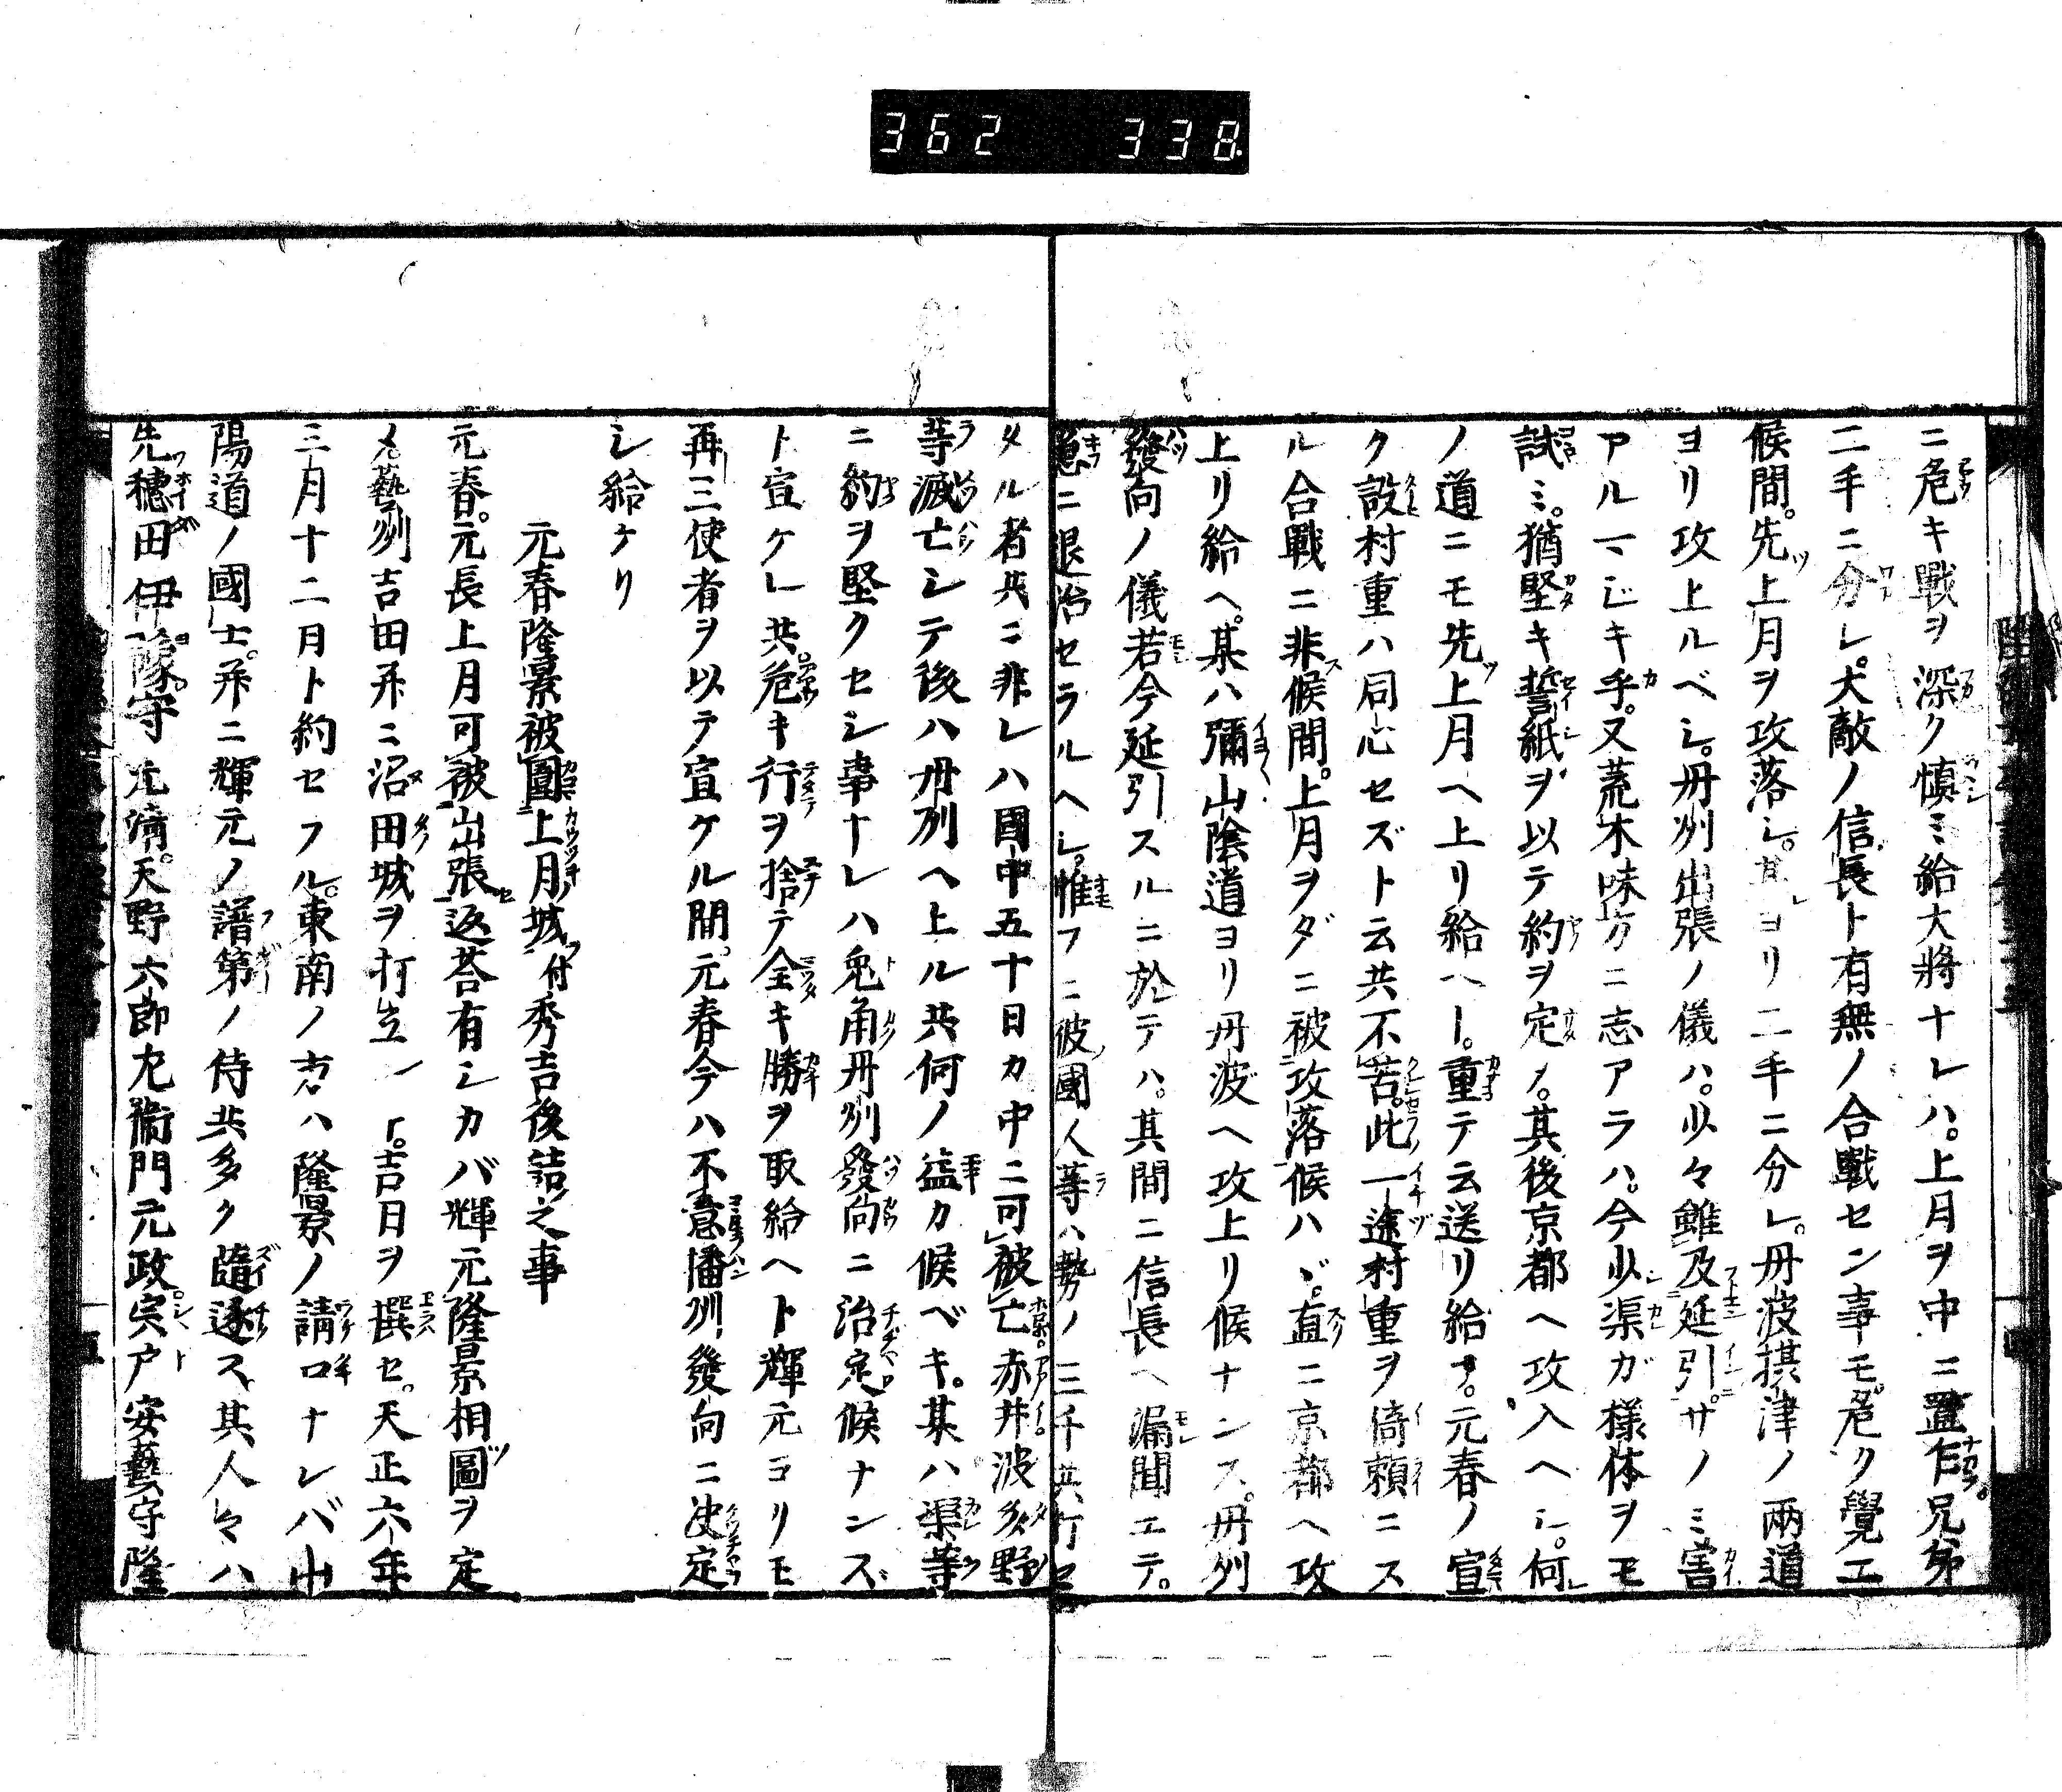 362 338
ニ危キ戰ヲ深ク慎ミ給大將ナレハ。上月ヲ中ニ置乍。兄弟
二手ニ分レ。大敵ノ信長ト有無ノ合戰セン事モ。危ク覺エ
候間。先上月ヲ攻落シ。其ヨリ二手ニ分レ。丹波摂津ノ兩道
ヨリ攻上ルベシ。丹州出張ノ儀ハ。少々雖及延引。サノミ害
アルマジキ乎。又荒木味方ニ志アラハ。今少渠ガ様体ヲモ
試ミ。猶堅キ誓紙ヲ以テ約ヲ定メ。其後京都ヘ攻入ヘシ。何
ノ道ニモ先上月ヘ上リ給ヘト。重テ云送リ給フ。元春ノ宣
ク設村重ハ同心セズト云共不苦。此一途村重ヲ倚頼ニス
ル合戰ニ非候間。上月ヲダニ被攻落候ハヾ。直ニ京都ヘ攻
上リ給ヘ。某ハ彌山陰道ヨリ丹波ヘ攻上リ候ナンス。丹州
發向ノ儀若今延引スルニ於テハ。其間ニ信長ヘ漏聞エテ。
急ニ退治セラルヘシ。惟フニ彼國人等ハ勢ノ三千共打セ
タル者共ニ非レハ國中五十日カ中ニ可被亡。赤井波多野
等滅亡シテ後ハ丹州ヘ上ル共何ノ益カ候ベキ。某ハ渠等
ニ約ヲ堅クセシ事ナレハ兎角丹州發向ニ治定候ナンズ
ト宣ケレ共。危キ行ヲ捨テ全キ勝ヲ取給ヘト輝元ヨリモ
再三使者ヲ以テ宣ケル間。元春今ハ不意播州發向ニ决定
シ給ケリ
元春隆景被圍上月城付秀吉後詰之事
元春。元長上月可被出張返荅有シカバ輝元隆景相圖ヲ定
メ藝州吉田并ニ沼田城ヲ打立ント。吉日ヲ撰セ。天正六年
三月十二月ト約セフル。東南ノ方ハ隆景ノ請口ナレバ山
陽道ノ國士。并ニ輝元ノ譜第ノ侍共多ク隨逐ス其人々ハ
先穂田伊豫守元清。天野六郎左衛門元政。宍戸安藝守隆